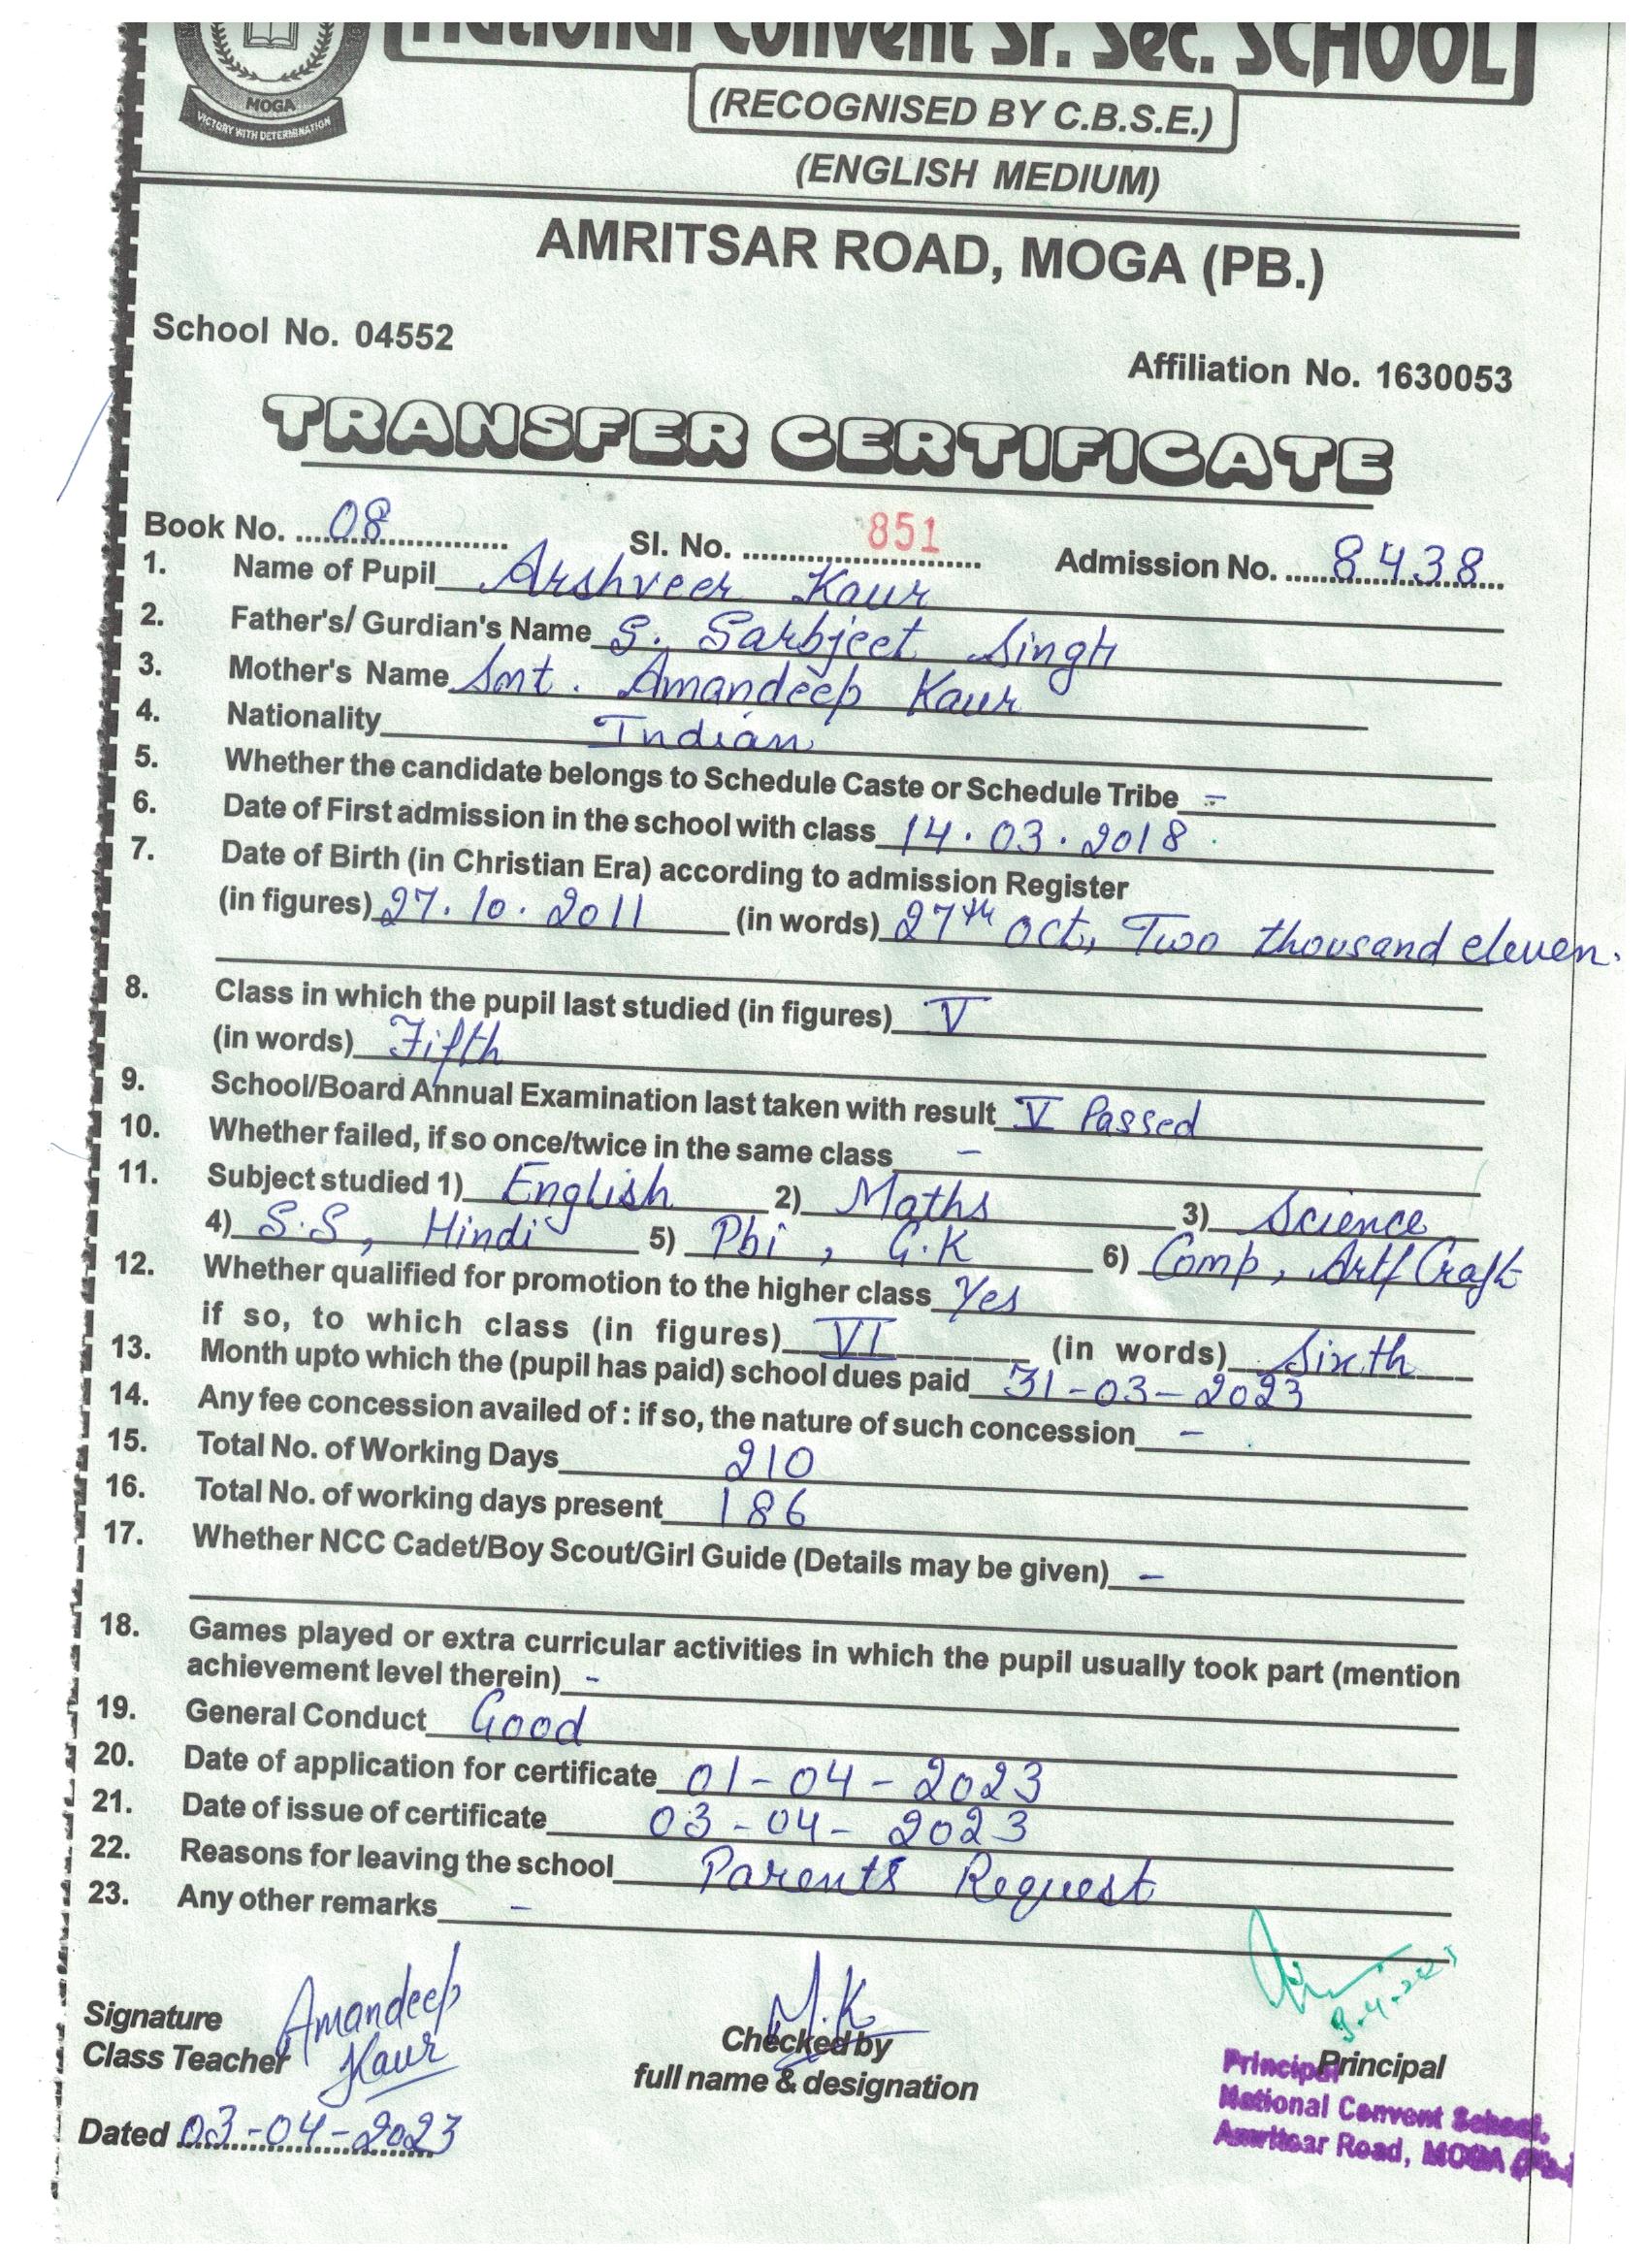 National Convent Sr. Sec. SCHOOL
MOGA
VICTORY WITH DETERMINATION
(RECOGNISED BY C.B.S.E.)
(ENGLISH MEDIUM)
AMRITSAR ROAD, MOGA (PB.)
School No. 04552
Affiliation No. 1630053
TRANSFER CERTIFICATE
Book No. 08 Sl. No. 851 Admission No. 8438
1. Name of Pupil Arshveer Kaur
2. Father's/ Gurdian's Name S. Sarbjeet Singh
3. Mother's Name Smt. Amandeep Kaur
4. Nationality Indian
5. Whether the candidate belongs to Schedule Caste or Schedule Tribe -
6. Date of First admission in the school with class 14.03.2018
7. Date of Birth (in Christian Era) according to admission Register
(in figures) 27.10.2011 (in words) 27th Oct, Two thousand eleven.
8. Class in which the pupil last studied (in figures) V
(in words) Fifth
9. School/Board Annual Examination last taken with result V Passed
10. Whether failed, if so once/twice in the same class -
11. Subject studied 1) English 2) Maths 3) Science
4) S.S, Hindi 5) Pbi, G.K 6) Comp, Art/Craft
12. Whether qualified for promotion to the higher class Yes
if so, to which class (in figures) VI (in words) Sixth
13. Month upto which the (pupil has paid) school dues paid 31-03-2023
14. Any fee concession availed of : if so, the nature of such concession -
15. Total No. of Working Days 210
16. Total No. of working days present 186
17. Whether NCC Cadet/Boy Scout/Girl Guide (Details may be given) -
18. Games played or extra curricular activities in which the pupil usually took part (mention
achievement level therein) -
19. General Conduct Good
20. Date of application for certificate 01-04-2023
21. Date of issue of certificate 03-04-2023
22. Reasons for leaving the school Parents Request
23. Any other remarks -
Signature
Class Teacher Amandeep Kaur
M.K
Checked by
full name & designation
Principal
Principal
National Convent School,
Amritsar Road, MOGA (Pb.)
Dated 03-04-2023